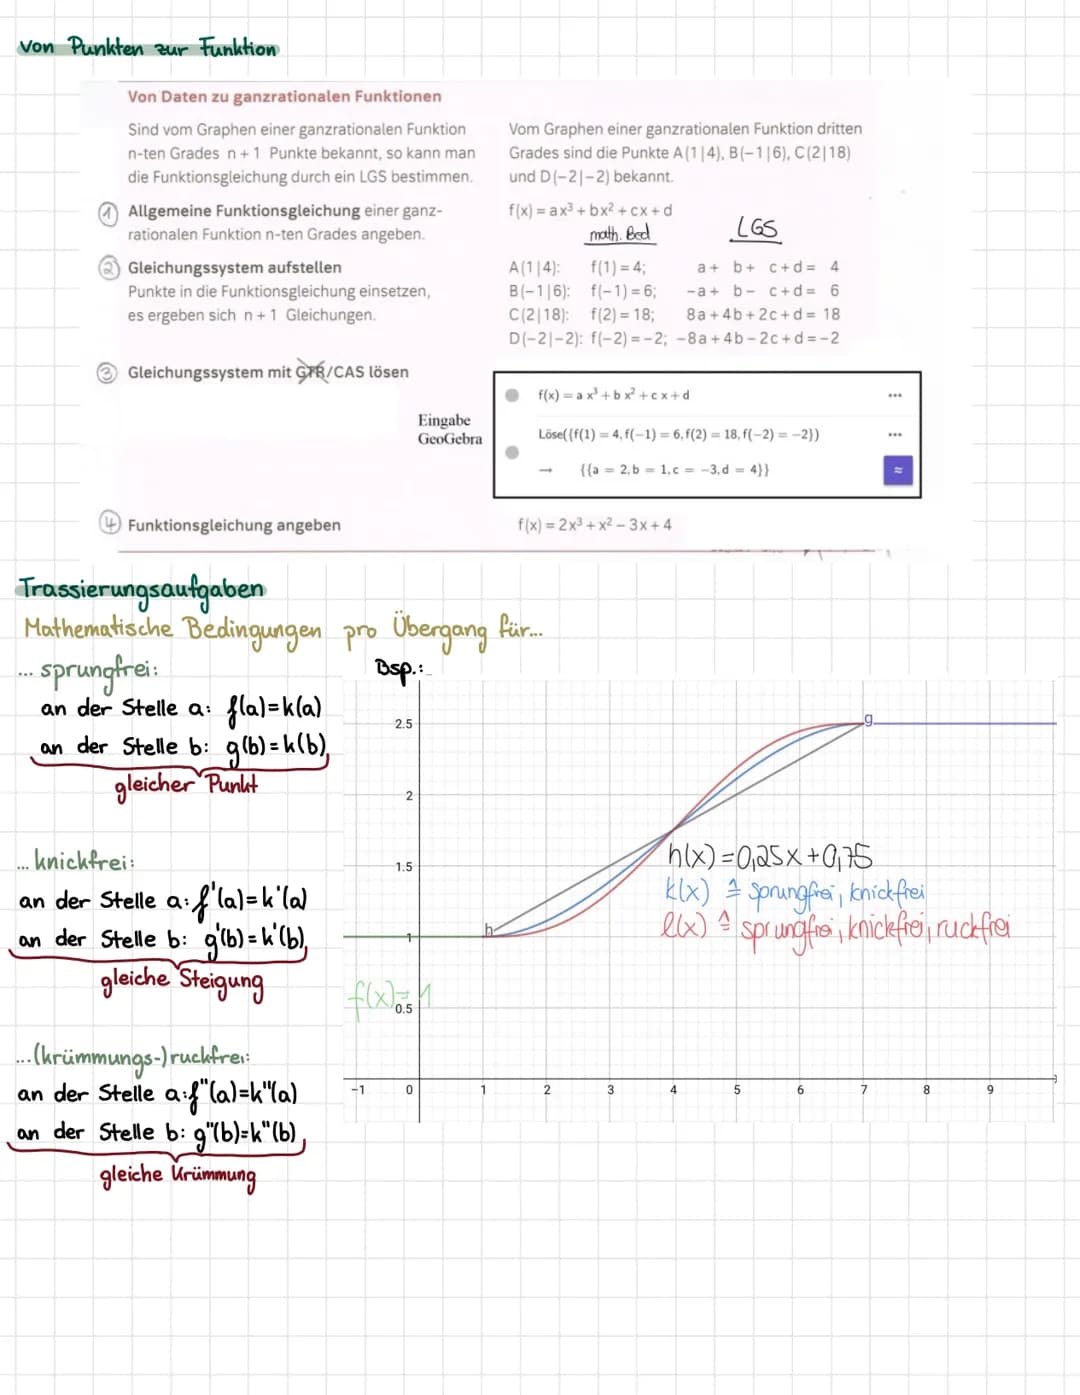 von Punkten zur Funktion
Von Daten zu ganzrationalen Funktionen
Sind vom Graphen einer ganzrationalen Funktion
n-ten Grades n + 1 Punkte bekannt, so kann man
die Funktionsgleichung durch ein LGS bestimmen.
Vom Graphen einer ganzrationalen Funktion dritten
Grades sind die Punkte A(1|4), B(−1|6), C(2|18)
und D(−2|−2) bekannt.
① Allgemeine Funktionsgleichung einer ganz-
rationalen Funktion n-ten Grades angeben.
f(x) = ax³ + bx² + cx + d
math. Bed
LGS
② Gleichungssystem aufstellen
Punkte in die Funktionsgleichung einsetzen,
es ergeben sich n + 1 Gleichungen.
A(1|4): f(1) = 4; a + b + c + d = 4
B(−1|6): f(−1) = 6; −a + b − c + d = 6
C(2|18): f(2) = 18; 8a + 4b + 2c + d = 18
D(−2|−2): f(−2) = −2; −8a + 4b − 2c + d = −2
③ Gleichungssystem mit GTR/CAS lösen
Eingabe
GeoGebra
f(x) = a x³ + b x² + c x + d
Löse({f(1) = 4, f(−1) = 6, f(2) = 18, f(−2) = −2})
→ {{a = 2, b = 1, c = −3, d = 4}}
≈
④ Funktionsgleichung angeben
f(x) = 2x³ + x² − 3x + 4
Trassierungsaufgaben
Mathematische Bedingungen pro Übergang für...
... sprungfrei:
an der Stelle a: f(a)=k(a)
an der Stelle b: g(b)=k(b)
gleicher Punkt
... knickfrei:
an der Stelle a: f'(a)=k'(a)
an der Stelle b: g'(b)=k'(b)
gleiche Steigung
...(krümmungs-)ruckfrei:
an der Stelle a: f"(a)=k"(a)
an der Stelle b: g"(b)=k"(b)
gleiche Krümmung
Bsp.:
2.5
2
1.5
1
0.5
−1 0 1 2 3 4 5 6 7 8 9
g
h
h(x)=0,25x+0,75
k(x) ≙ sprungfrei, knickfrei
l(x) ≙ sprungfrei, knickfrei, ruckfrei
f(x)=1